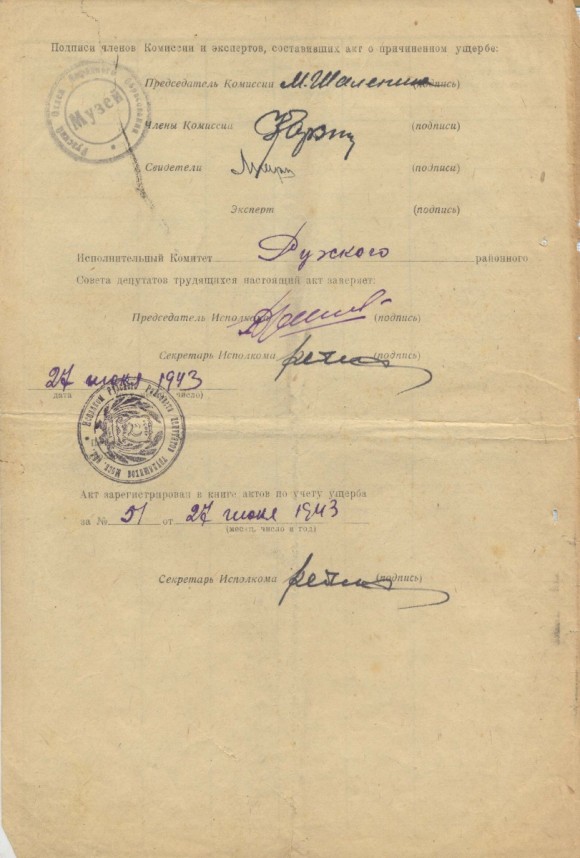 Подписи членов Комиссии и экспертов, составивших акт о причиненном ущербе:
Председатель Комиссии М.Шаленин (подпись)
Музей
Члены Комиссиа (подписи)
Свидетели (подписи)
Эксперт (подпись)
Исполнительный Комитет Рузского районного
Совета депутатов трудящихся настоящий акт заверяет:
Председатель Исполкома (подпись)
Секретарь Исполкома (подпись)
27 июля 1943
дата число)
Акт зарегистрирован в книге актов по учету ущерба
за № 51 от 27 июля 1943
(месяц, число и год)
Секретарь Исполкома (подпись)